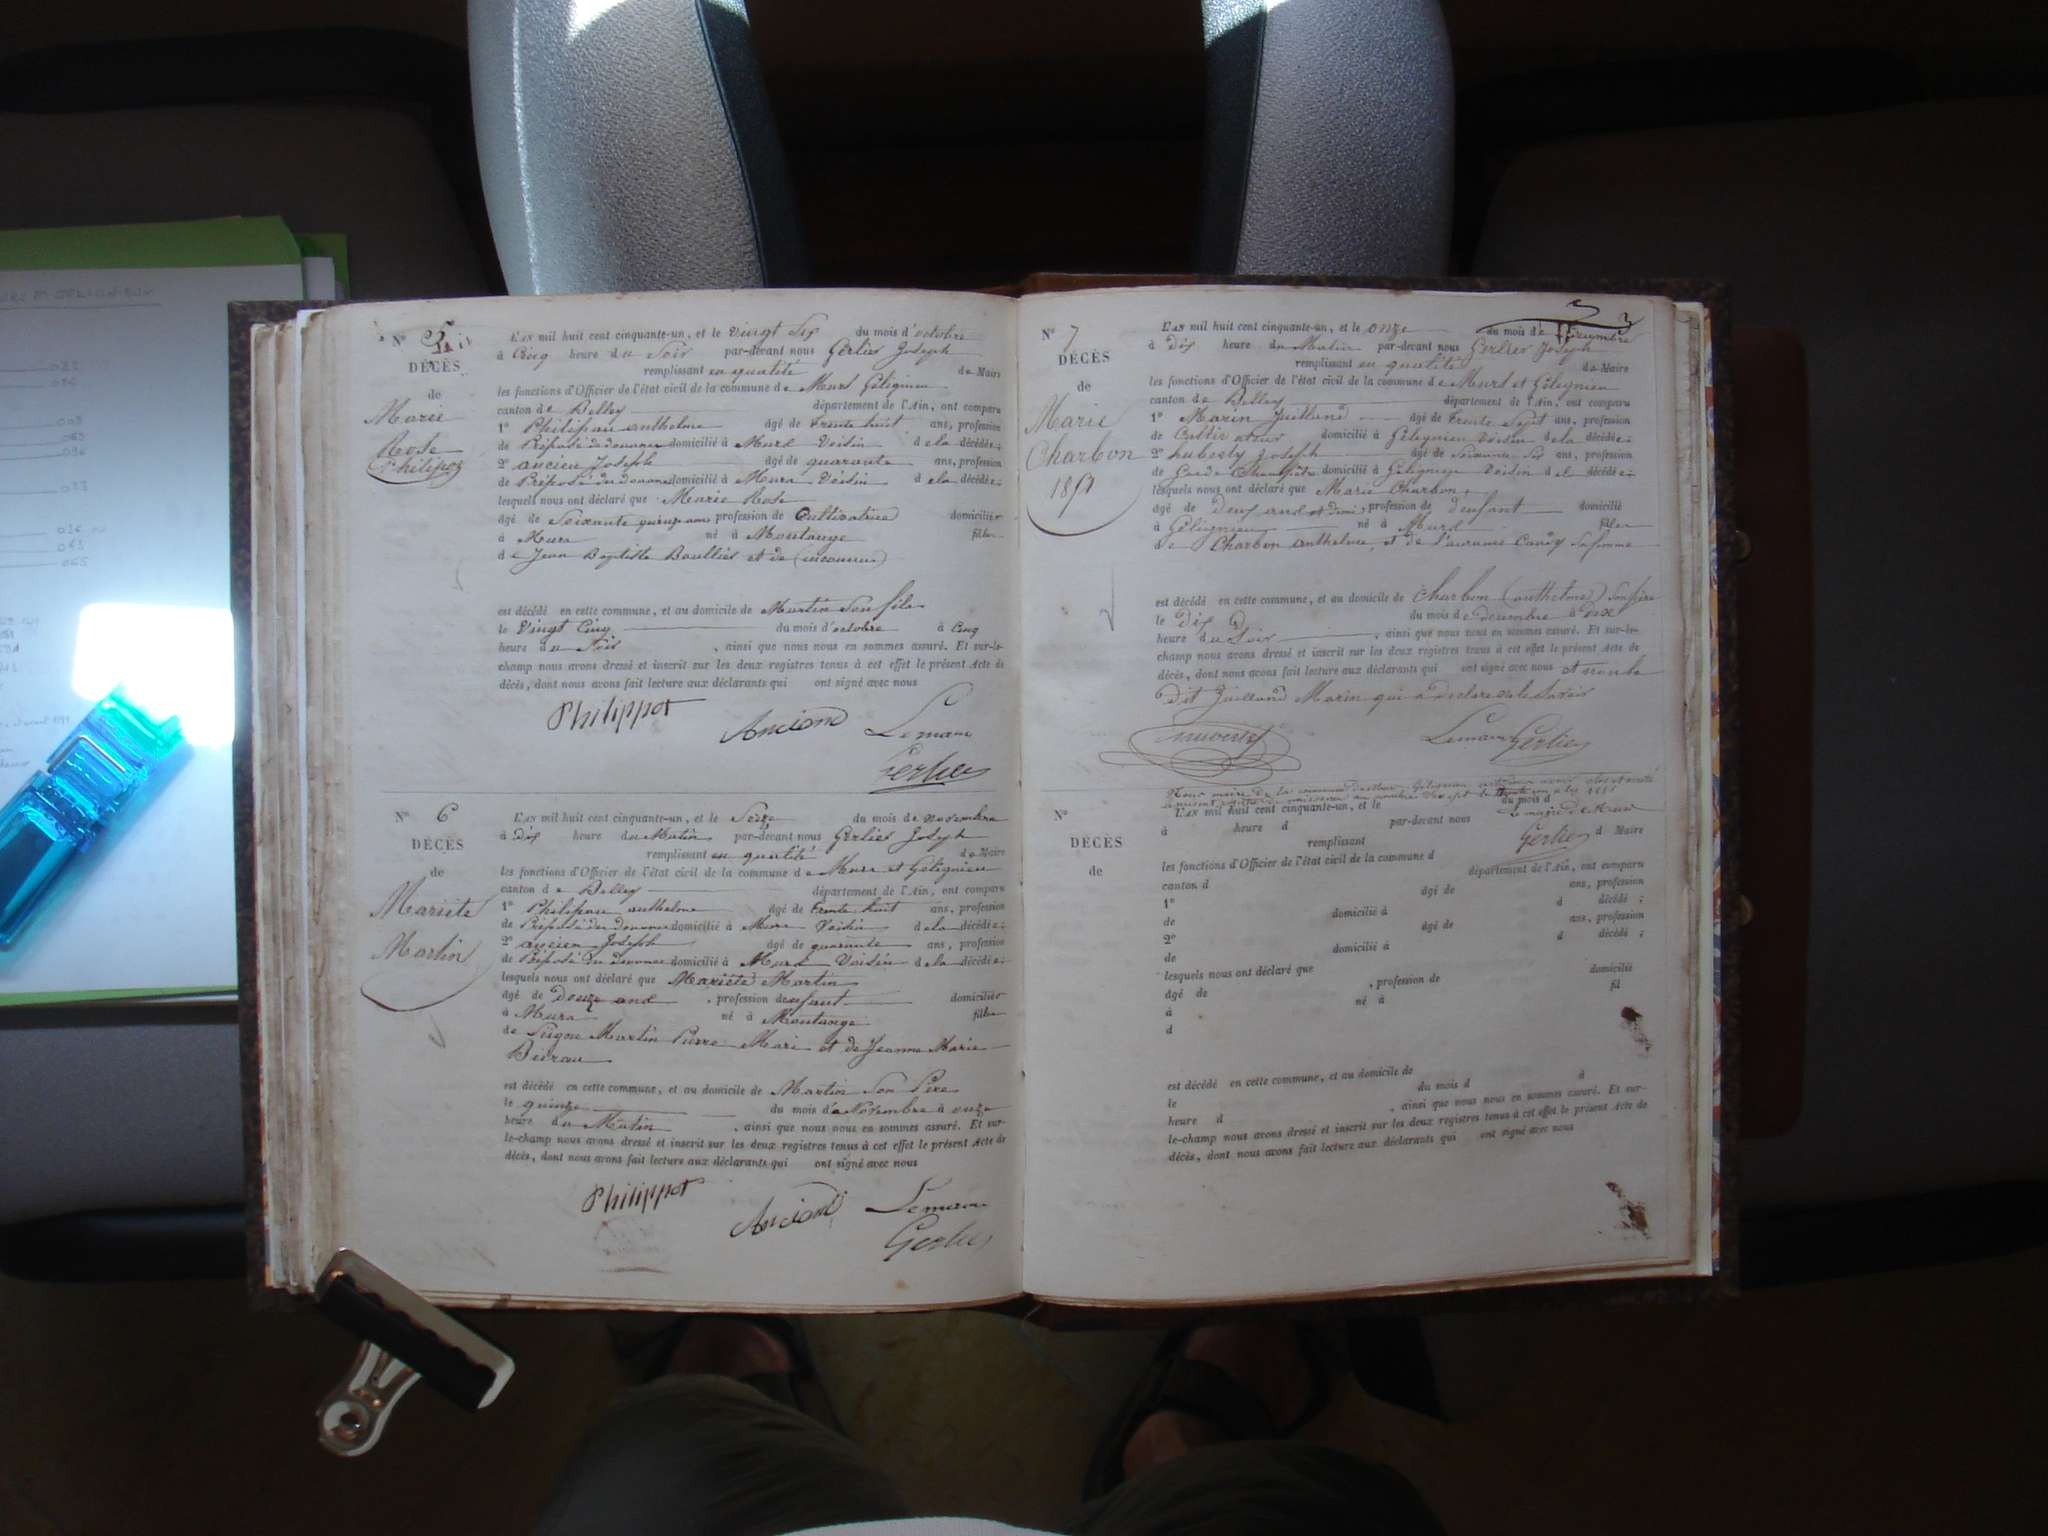 N° 5
DÉCÈS
de
Marie
Rose
Philipoz
L'AN mil huit cent cinquante-un, et le vingt Six du mois d'octobre
à Cinq heure du Soir par-devant nous Gerlier Joseph
remplissant en qualité de Maire
les fonctions d'Officier de l'état civil de la commune de Murs Gélignieu
canton de Belley département de l'Ain, ont comparu
1° Philipau anthelme âgé de trente huit ans, profession
de Préposé des douanes domicilié à Murs Voisin de la décédée;
2° ancien Joseph âgé de quarante ans, profession
de Préposé des douanes domicilié à Murs Voisin de la décédée;
lesquels nous ont déclaré que Marie Rose
âgé de Soixante quinze ans profession de Cultivatrice domicilier
à Murs né à Montange fille
de Jean Baptiste Boullies et de (inconnue)
est décédé en cette commune, et au domicile de Martin Son fils
le Vingt Cinq du mois d'octobre à Cinq
heure du Soir, ainsi que nous nous en sommes assuré. Et sur-le-
champ nous avons dressé et inscrit sur les deux registres tenus à cet effet le présent Acte de
décès, dont nous avons fait lecture aux déclarants qui ont signé avec nous
Philippot Anciand Le maire
Gerlier
N° 6
DÉCÈS
de
Mariete
Martin
L'AN mil huit cent cinquante-un, et le Seize du mois de novembre
à dix heure du Matin par-devant nous Gerlier Joseph
remplissant en qualité de Maire
les fonctions d'Officier de l'état civil de la commune de Murs et Gélignieu
canton de Belley département de l'Ain, ont comparu
1° Philipau anthelme âgé de trente huit ans, profession
de Préposé des douanes domicilié à Murs Voisin de la décédée;
2° ancien Joseph âgé de quarante ans, profession
de Préposé des douanes domicilié à Murs Voisin de la décédée;
lesquels nous ont déclaré que Mariete Martin
âgé de douze ans, profession denfant domicilier
à Murs né à Montange fille
de Martin Pierre Mari et de Jeanne Marie
est décédé en cette commune, et au domicile de Martin Son Père
le quinze du mois de Novembre à onze
heure du Matin, ainsi que nous nous en sommes assuré. Et sur-
le-champ nous avons dressé et inscrit sur les deux registres tenus à cet effet le présent Acte de
décès, dont nous avons fait lecture aux déclarants qui ont signé avec nous
Philippot Anciand Le maire
Gerlier
3
N° 7
DÉCÈS
de
Marie
Charbon
1851
L'AN mil huit cent cinquante-un, et le onze du mois de décembre
à dix heure du Matin par-devant nous Gerlier Joseph
remplissant en qualité de Maire
les fonctions d'Officier de l'état civil de la commune de Murs et Gélignieu
canton de Belley département de l'Ain, ont comparu
1° Marin Juilland âgé de trente Sept ans, profession
de Cultivateur domicilié à Gélignieu Voisin de la décédée;
2° Joseph âgé de Soixante Six ans, profession
de Garde Champêtre domicilié à Gélignieu Voisin de l décédée;
lesquels nous ont déclaré que Marie Charbon,
âgé de deux ans et demi profession de denfant domicilié
à Gélignieu né à Murs fille
de Charbon anthelme, et de Caudy Safemme
est décédé en cette commune, et au domicile de Charbon (anthelme) Son père
le Dix du mois de décembre à dix
heure du Soir, ainsi que nous nous en sommes assuré. Et sur-le-
champ nous avons dressé et inscrit sur les deux registres tenus à cet effet le présent Acte de
décès, dont nous avons fait lecture aux déclarants qui ont signé avec nous et non le
dit Juilland Marin qui a déclaré ne le Savoir
Le maire Gerlier
Nous maire de la commune de Murs Gélignieu
N°
DÉCÈS
de
L'AN mil huit cent cinquante-un, et le du mois d
Le maire de Murs
à heure d par-devant nous
Gerlier
remplissant d Maire
les fonctions d'Officier de l'état civil de la commune d
canton d département de l'Ain, ont comparu
1° âgé de ans, profession
de domicilié à d décédé;
2° âgé de ans, profession
de domicilié à d décédé;
lesquels nous ont déclaré que
âgé de, profession de domicilié
à né à fil
d
est décédé en cette commune, et au domicile de
le du mois d à
heure d, ainsi que nous nous en sommes assuré. Et sur-
le-champ nous avons dressé et inscrit sur les deux registres tenus à cet effet le présent Acte de
décès, dont nous avons fait lecture aux déclarants qui ont signé avec nous